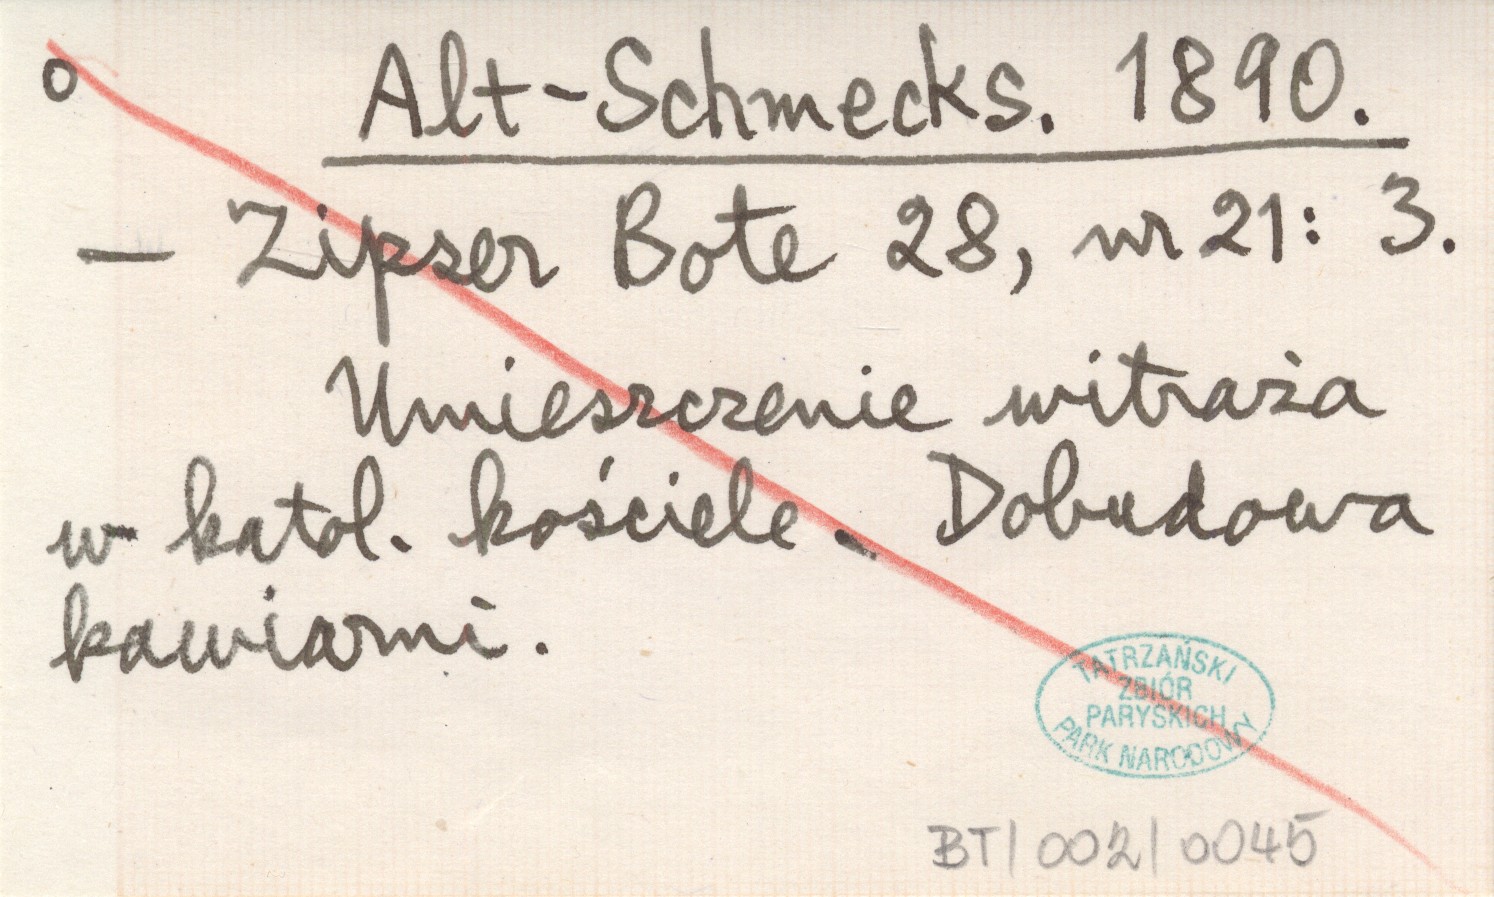 o Alt-Schmecks. 1890.
— Zipser Bote 28, nr 21: 3.
Umieszczenie witraża
w katol. kościele. Dobudowa
kawiarni.
TATRZAŃSKI
ZBIÓR
PARYSKICH
PARK NARODOWY
BT/002/0045